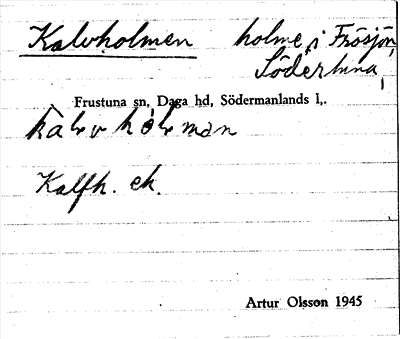 Kalvholmen holme i Frösjön,
Södertuna,
Frustuna sn, Daga hd, Södermanlands l,.
kalvhólman
Kalfh. ek.
Artur Olsson 1945